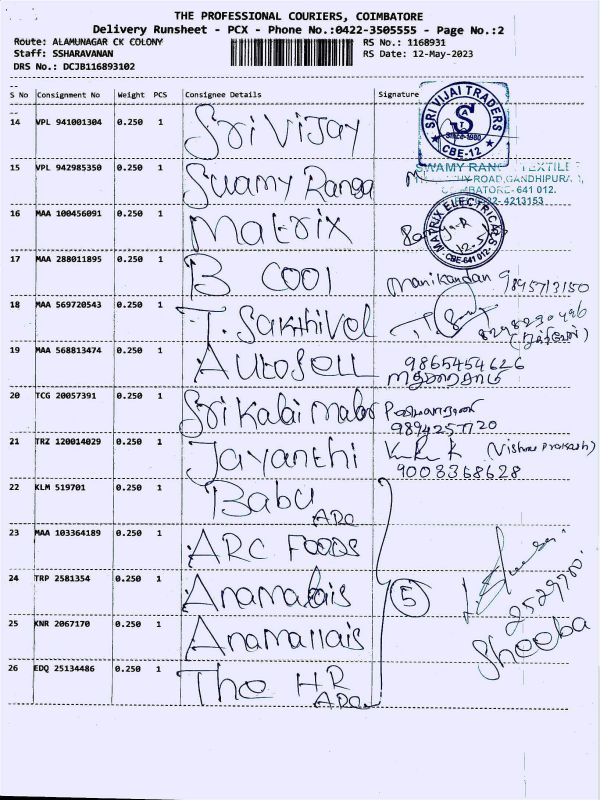 THE PROFESSIONAL COURIERS, COIMBATORE
Delivery Runsheet - PCX - Phone No.:0422-3505555 - Page No.:2
Route: ALAMUNAGAR CK COLONY RS No.: 1168931
Staff: SSHARAVANAN RS Date: 12-May-2023
DRS No.: DCJB116893102
S No Consignment No Weight PCS Consignee Details Signature
14 VPL 941001304 0.250 1 Sri Vijay
SRI VIJAI TRADERS
SINCE-1980
CBE-12
15 VPL 942985350 0.250 1 Swamy Ranga
SWAMY RANGA TEXTILE
ROAD, GANDHIPURAM,
COIMBATORE- 641 012.
4213153
16 MAA 100456091 0.250 1 Matrix
MATRIX ELECTRICALS
CBE-641 012
17 MAA 288011895 0.250 1 B COOl Manikandan 9895713150
18 MAA 569720543 0.250 1 T. Sakthivel
19 MAA 568813474 0.250 1 AUtosell 9865454626
20 TCG 20057391 0.250 1 Sri Kalai Malar
9894257720
21 TRZ 120014029 0.250 1 Jayanthi (Vishnu Prakash)
9003368628
22 KLM 519701 0.250 1 Babu
23 MAA 103364189 0.250 1 ARC FOODS
24 TRP 2581354 0.250 1 Anamalais 5
25 KNR 2067170 0.250 1 Anamallais Sheeba
26 EDQ 25134486 0.250 1 The HR